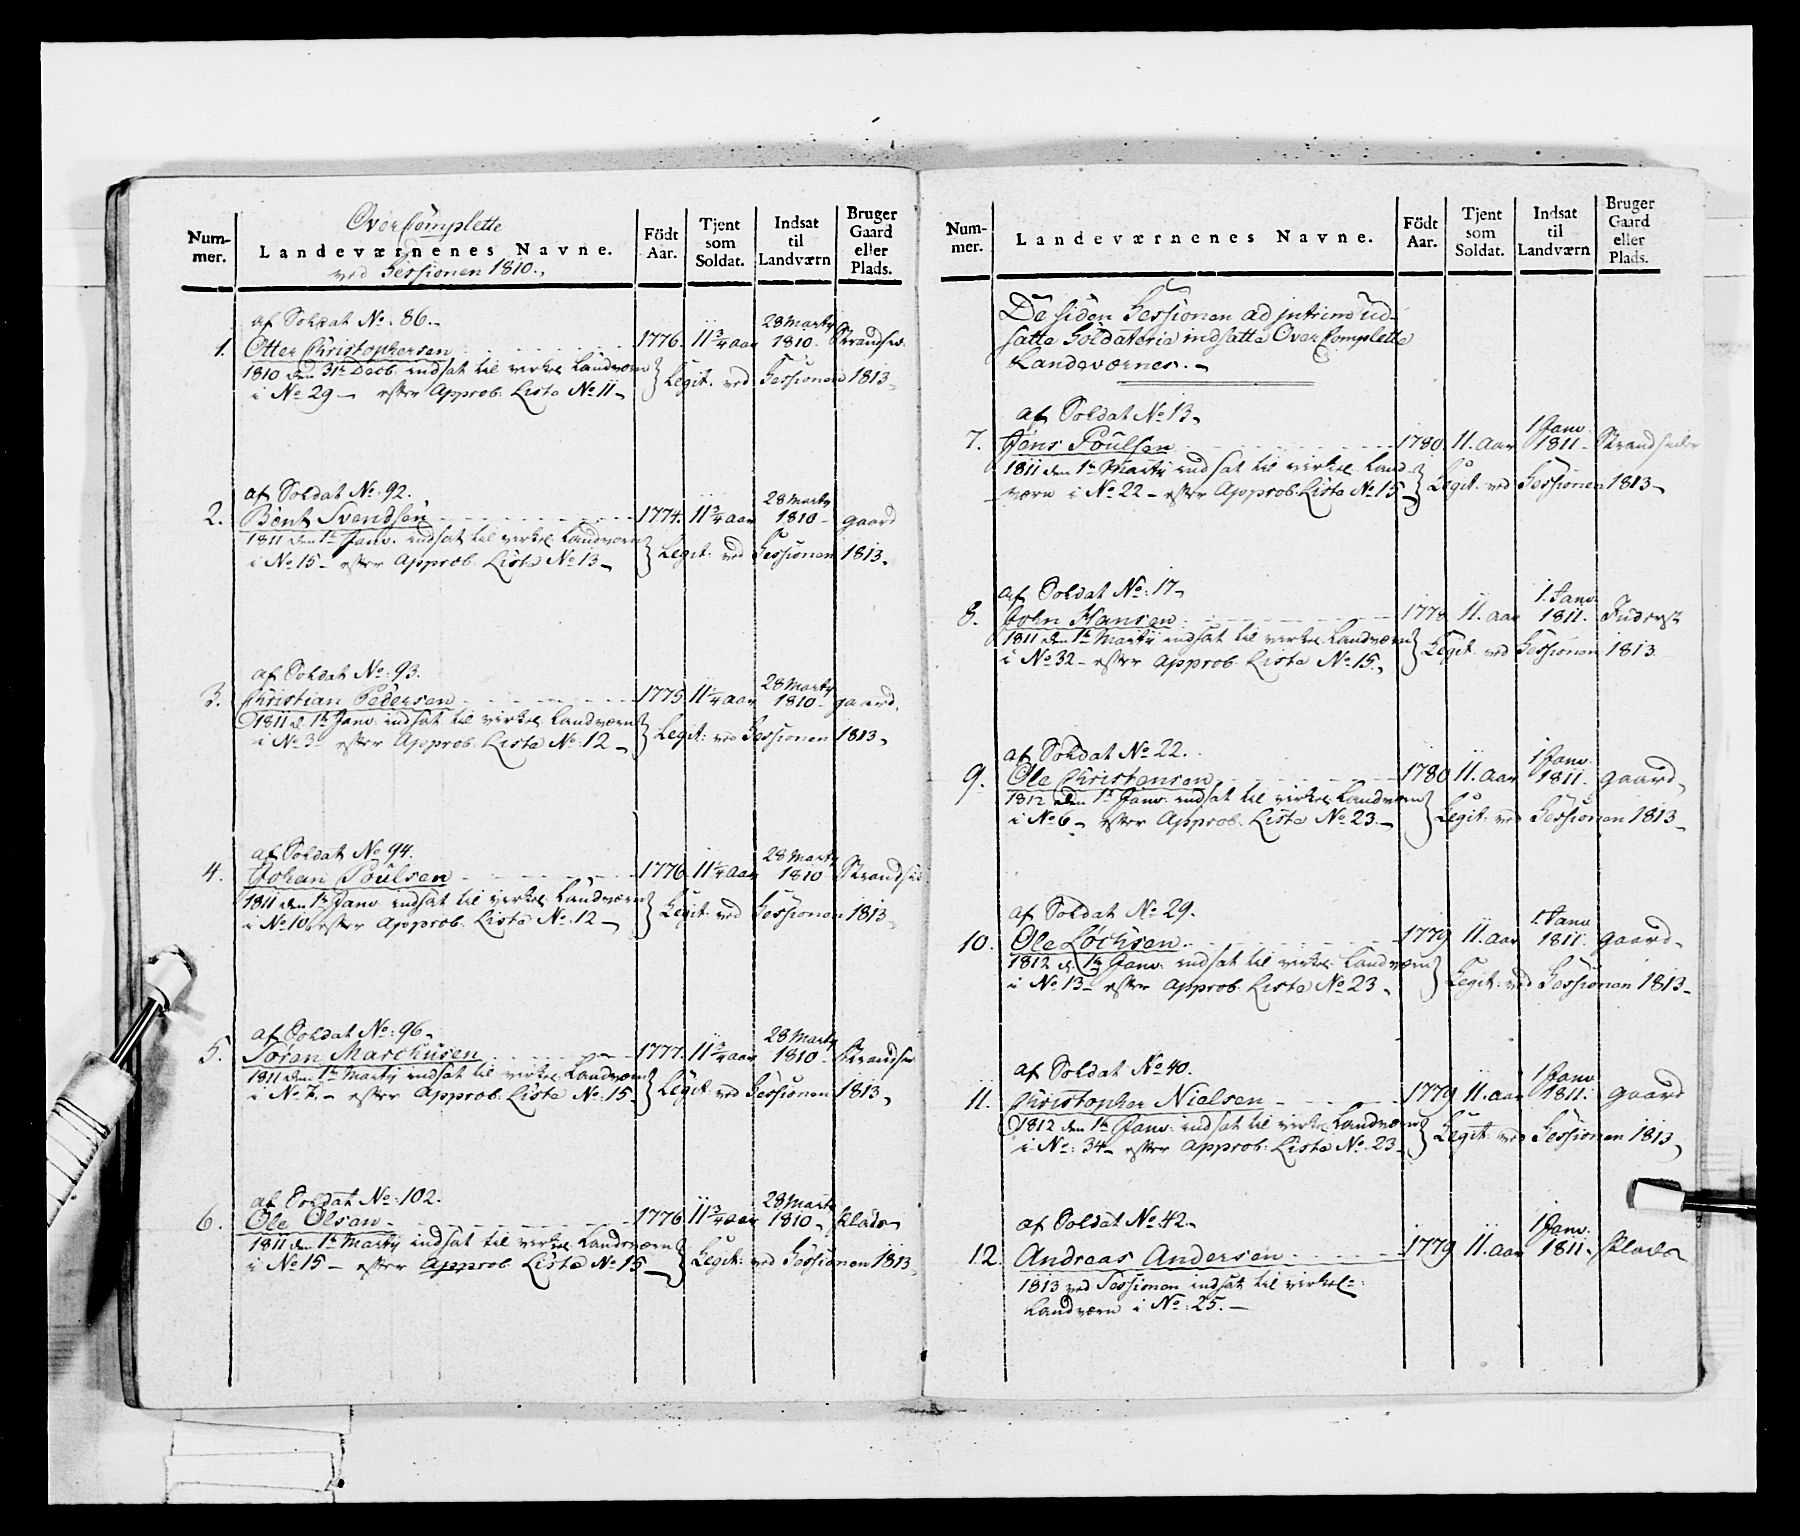 Num-
mer.
OverComplette
Landeværnenes Navne.
ved Sessionen 1810.
Födt
Aar.
Tjent
som
Soldat.
Indsat
til
Landværn
Bruger
Gaard
eller
Plads.
af Soldat No. 86.
1. Otter Christophersen 1776. 11 3/4 aar 28 Marty 1810. Strandsid.
1810 den 31te Decb. indsat til virkel. Landværn
i No 29 - efter Approb. Liste No 11 } Legit. ved Sessionen 1813.
af Soldat No. 92.
2. Bent Svendsen 1774. 11 3/4 aar 28 Marty 1810 - gaard
1811 den 1te Janv. indsat til virkel. Landværn
i No 15 - efter Approb. Liste No 13 } Legit. ved Sessionen 1813.
af Soldat No. 93.
3. Christian Pedersen 1775. 11 1/4 aar 28 Marty 1810 - gaard.
1811 d. 1te Janv. indsat til virkel. Landværn
i No 3 efter Approb. Liste No. 12 - } Legit: ved Sessionen 1813.
af Soldat No 94.
4. Johan Poulsen 1776. 11 1/4 aar 28 Marty 1810 Strandsid
1811 den 1te Janv. indsat til virkel. Landværn
i No 10 efter Approb. Liste No. 12 - } Legit. ved Sessionen 1813.
af Soldat No. 96.
5. Søren Marchusen 1777. 11 3/4 aar 28 Marty 1810 - Strandsid
1811 den 1te Marty indsat til virkel. Landværn
i No 7. - efter Approb. Liste No. 15 - } Legit. ved Sessionen 1813.
af Soldat No. 102.
6. Ole Olsen 1776. 11 3/4 aar 28 Marty 1810. Plads
1811 den 1te Marty indsat til virkel. Landværn
i No 15 - efter Approb. Liste No 15 } Legit. ved Sessionen 1813.
Num-
mer.
Landeværnenes Navne.
Födt
Aar.
Tjent
som
Soldat.
Indsat
til
Landværn
Bruger
Gaard
eller
Plads.
De siden Sessionen ad jntrim ud-
satte Soldaterie indsatte OverComplette
Landeværner. -
af Soldat No 13.
7. Jens Poulsen 1780. 11. aar 1 Janv. 1811. Strandsider
1811 den 1te Marty indsat til virkel. Land-
værn i No 22 - efter Approb. Liste No 15 } Legit. ved Sessionen 1813.
af Soldat No. 17.
8. John Hansen 1778 11. aar 1. Janv. 1811. Inderst
1811 den 1te Marty indsat til virkel. Landværn
i No 32 - efter Approb. Liste No. 15. } Legit. ved Sessionen 1813
af Soldat No 22.
9. Ole Christensen 1780 11. aar 1 Janv. 1811. gaard.
1812 den 1te Janv. indsat til virkel. Landværn
i No 6 - efter Approb. Liste No 23. - } Legit. ved Sessionen 1813.
af Soldat No 29.
10. Ole Lochsen 1779 11. aar 1. Janv 1811. gaard.
1812 d. 1te Janv. indsat til virkel. Landværn
i No 13 - efter Approb. Liste No 23. } Legit. ved Sessionen 1813.
af Soldat No 40.
11. Christopher Nielsen 1779 11. aar 1 Janv 1811. gaard
1812 den 1te Janv. indsat til virkel. Landværn
i No. 34 - efter Approb. Liste No. 23 } Legit. ved Sessionen 1813.
af Soldat No 42.
12. Andreas Andersen 1779 11. aar 1 Janv. 1811. Plads
1813 ved Sessionen indsat til virkel:
Landværn i No. 25. -